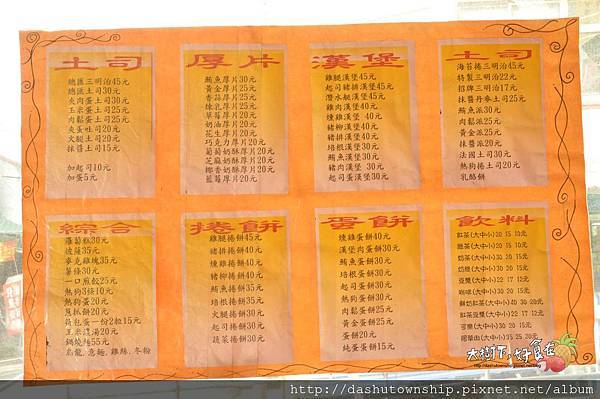 土司
總匯三明治45元
總匯土司30元
夾肉蛋土司30元
玉米蛋土司30元
肉鬆蛋土司30元
夾蛋吐司20元
火腿土司20元
抹醬土司15元
加起司10元
加蛋5元
厚片
鮪魚厚片30元
黃金厚片25元
香蒜厚片25元
煉乳厚片25元
草莓厚片20元
奶油厚片20元
花生厚片20元
巧克力厚片20元
葡萄奶酥厚片20元
芝麻奶酥厚片20元
椰香奶酥厚片20元
藍莓厚片20元
漢堡
雞腿漢堡45元
起司豬排漢堡45元
潛水艇漢堡45元
雞肉漢堡40元
燻雞漢堡 40元
豬柳漢堡 40元
豬排漢堡 40元
培根漢堡30元
鮪魚漢堡30元
豬肉漢堡 30元
起司蛋漢堡30元
土司
海苔捲三明治45元
特製三明治22元
招牌三明治17元
抹醬丹麥土司25元
鮪魚派30元
肉鬆派25元
黃金派25元
抹醬派20元
法國土司30元
熱狗捲土司20元
乳酪餅
綜合
蘿蔔糕30元
披薩35元
麥克雞塊35元
薯條30元
一口煎餃25元
熱狗3條10元
熱狗蛋20元
蔥抓餅20元
荷包蛋一份2粒15元
玉米濃湯20元
鍋燒麵55元
烏龍,意麵,雞絲,冬粉
捲餅
雞腿捲餅45元
豬排捲餅40元
燻雞捲餅40元
豬柳捲餅40元
鮪魚捲餅35元
培根捲餅35元
火腿捲餅30元
起司捲餅30元
蔬菜捲餅30元
蛋餅
燻雞蛋餅40元
漢堡肉蛋餅30元
鮪魚蛋餅30元
培根蛋餅30元
起司蛋餅30元
熱狗蛋餅30元
肉鬆蛋餅25元
黃金蛋餅25元
蛋餅20元
純蛋蛋餅15元
飲料
紅茶(大中小)20 15 10元
奶茶(大中小)30 20 15元
豆漿(大中小)22 17 12元
鮮奶紅茶(大中小)40 30 20元
紅茶豆漿(大中小)30 20 15元
可樂(大中小)30 20 15元
大樹下,好食在
http://dashutownship.pixnet.net/blog
http://dashutownship.pixnet.net/album